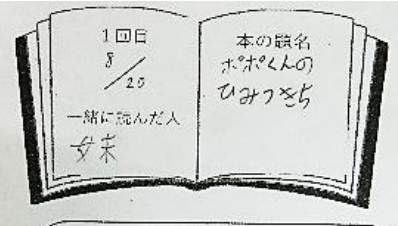 1回目
8/20
一緒に読んだ人
女末
本の題名
ポポくんの
ひみつきち